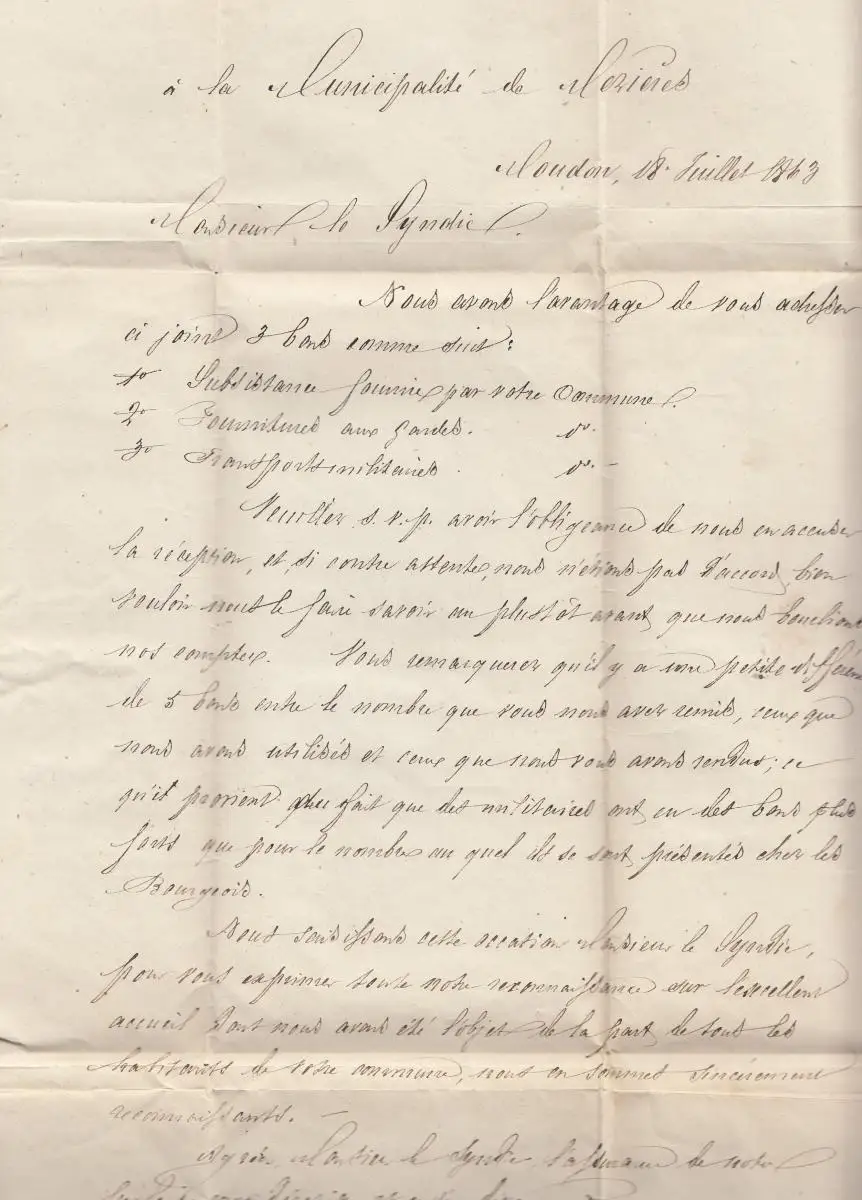 à la Municipalité de Mezières
Moudon, 18 Juillet 1863
Monsieur le Syndic.
Nous avons l'avantage de vous adresser
ci joint 3 bons comme suit:
1o Subsistance fournie par votre Commune.
2o Fournitures aux gardes. do.
3o Transports militaires. do. -
Veuillez s.v.p. avoir l'obligeance de nous en accuser
la réception, et, si contre attente, nous n'étions pas d'accord, bien
vouloir nous le faire savoir au plustôt avant que nous bouclions
nos comptes. Vous remarquerez qu'il y a une petite différen
de 5 bons entre le nombre que vous nous avez remis, ceux que
nous avons utilisés et ceux que nous vous avons rendus; ce
qu'il provient du fait que des militaires ont eu des bons plus
forts que pour le nombre au quel ils se sont présentés chez les
Bourgeois.
Nous saisissons cette occasion Monsieur le Syndic,
pour vous exprimer toute notre reconnaissance sur l'excellent
accueil dont nous avons été l'objet de la part de tous les
habitants de votre commune, nous en sommes sincèrement
reconnaissants. -
Agréez, Monsieur le Syndic l'assurance de notre